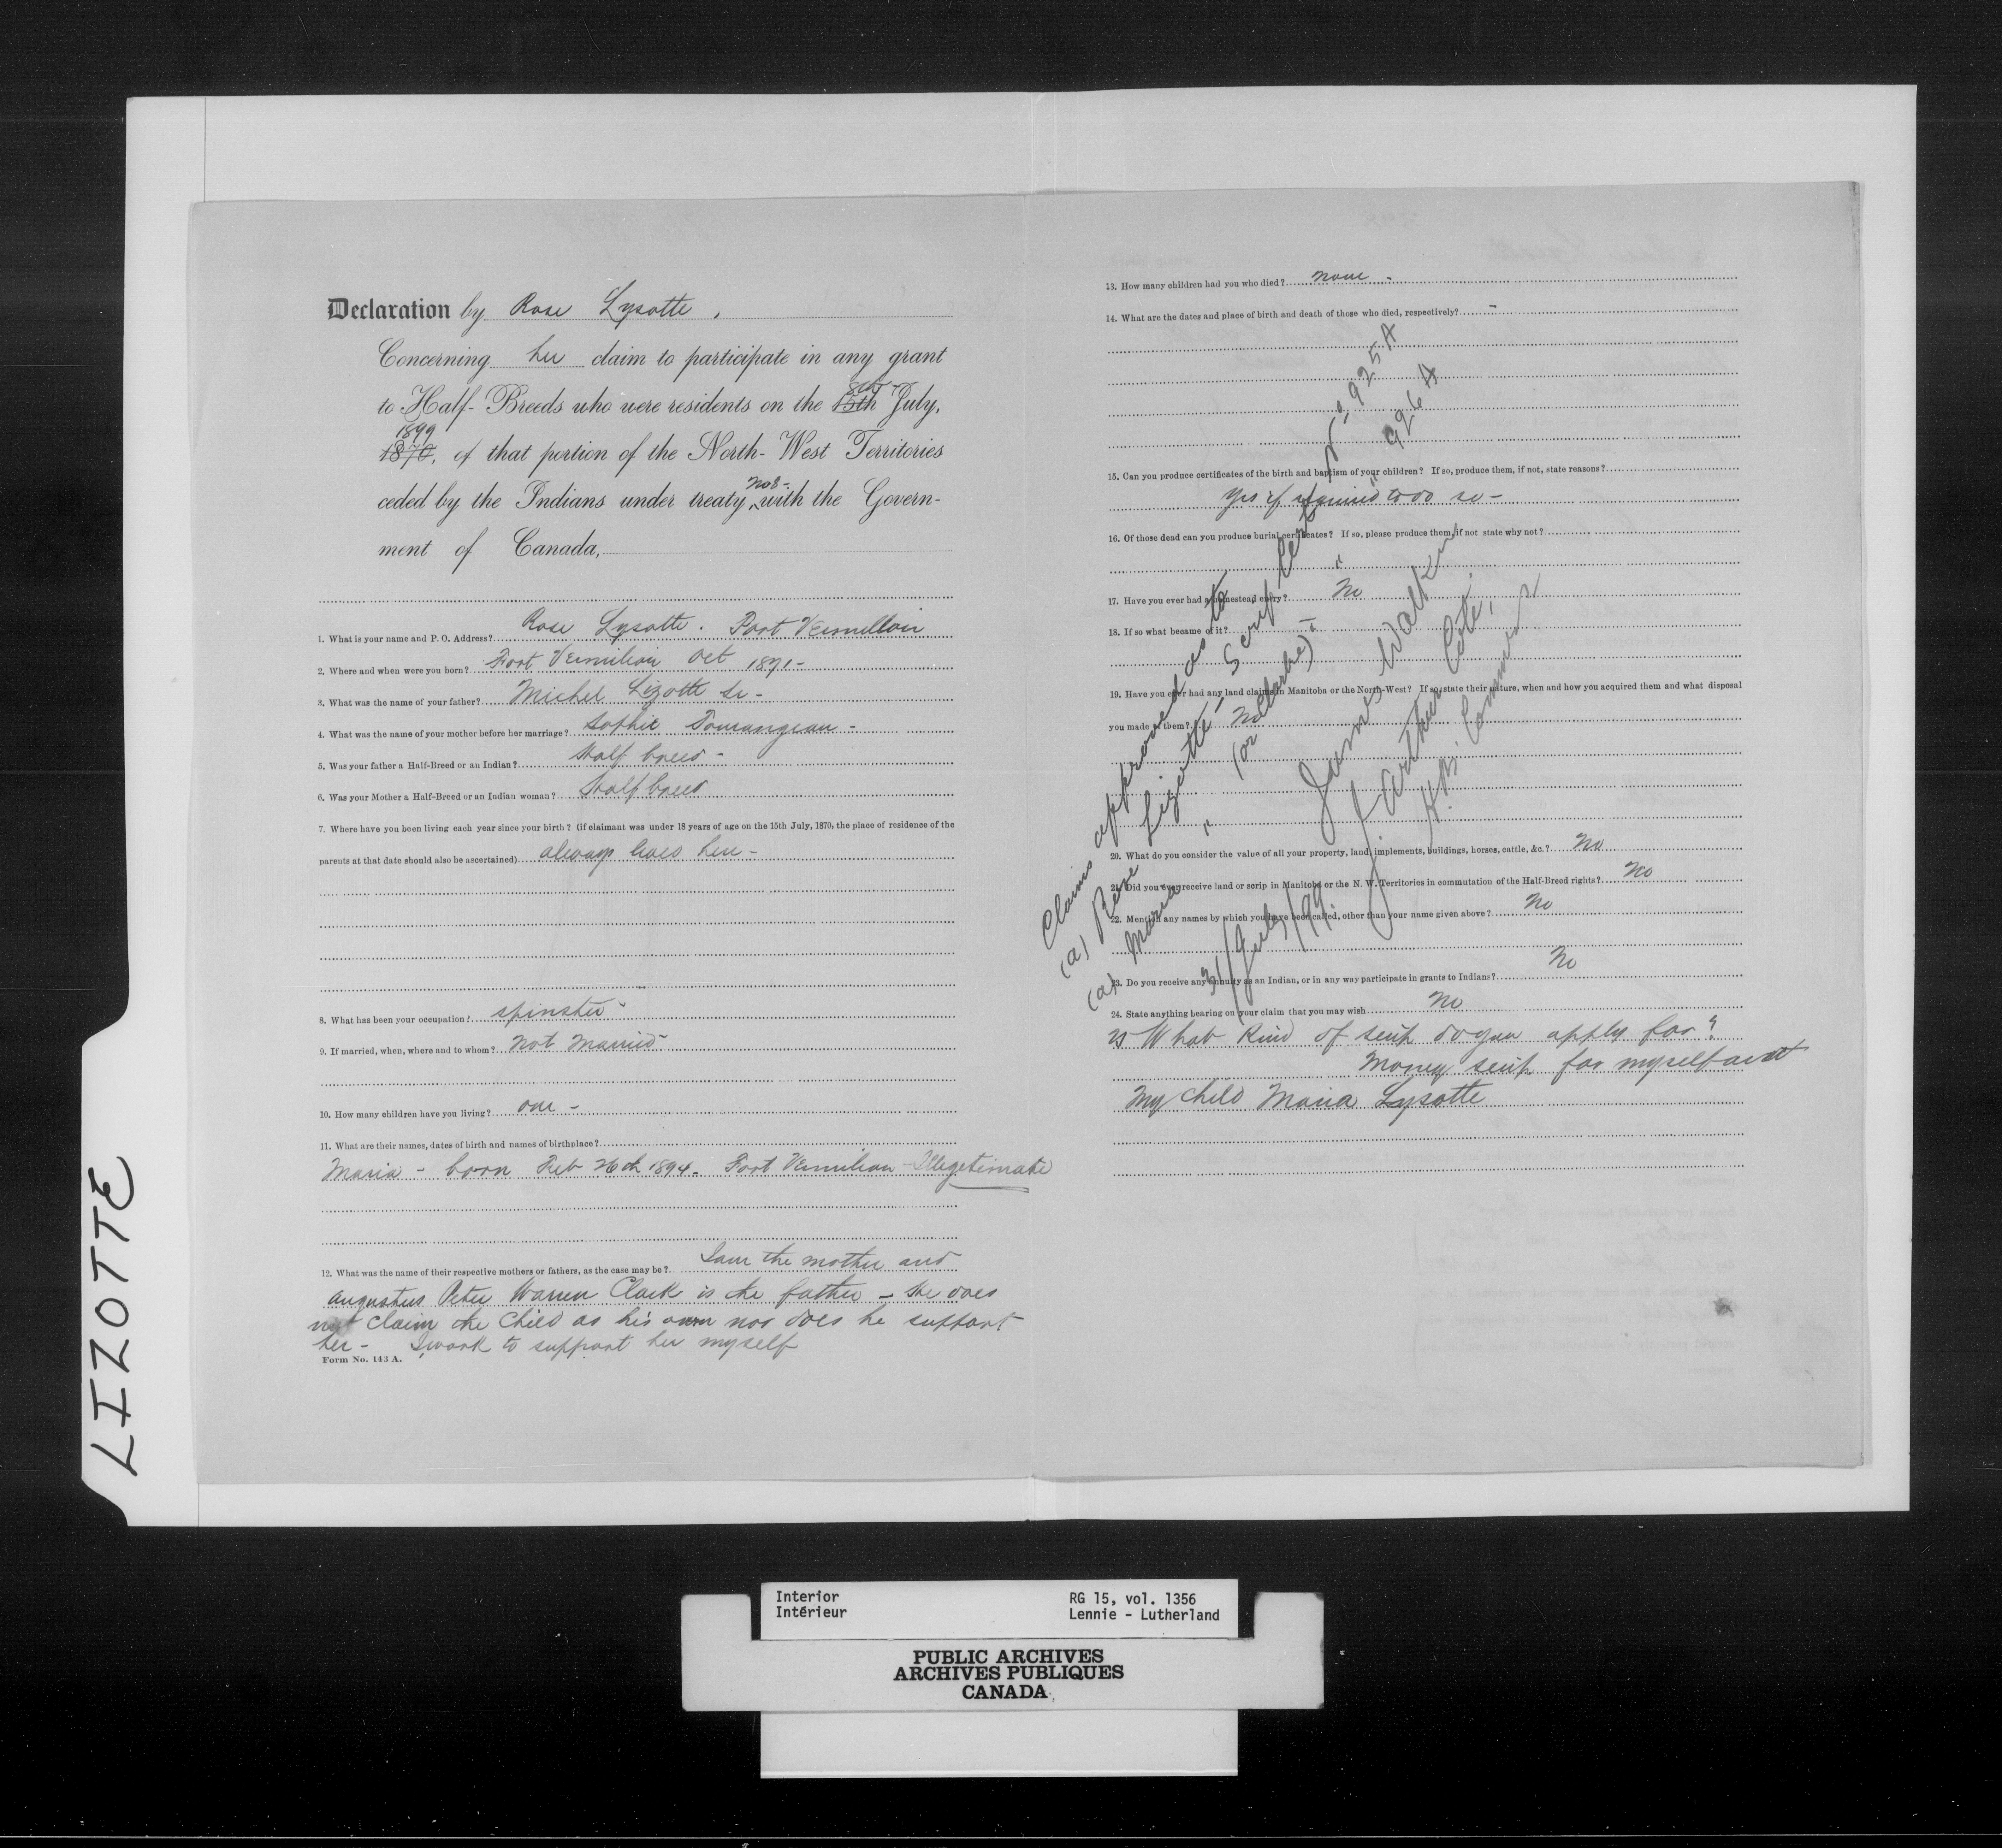 LIZOTTE
Declaration by Rose Lysotte.
Concerning her claim to participate in any grant
to Half-Breeds who were residents on the 15th 8th July,
1870, 1899 of that portion of the North-West Territories
ceded by the Indians under treaty No 8- with the Govern-
ment of Canada,
1. What is your name and P. O. Address? Rose Lysotte. Fort Vermillion
2. Where and when were you born? Fort Vermilion Oct 1871-
3. What was the name of your father? Michel Lizotte Sr-
4. What was the name of your mother before her marriage? Sophie
5. Was your father a Half-Breed or an Indian? Half breed-
6. Was your Mother a Half-Breed or an Indian woman? Half breed
7. Where have you been living each year since your birth? (if claimant was under 18 years of age on the 15th July, 1870, the place of residence of the
parents at that date should also be ascertained) always lived here-
8. What has been your occupation? spinster-
9. If married, when, where and to whom? Not Married-
10. How many children have you living? one-
11. What are their names, dates of birth and names of birthplace?
Maria - born Feb 26th 1894- Fort Vermilion - Illegetimate
12. What was the name of their respective mothers or fathers, as the case may be? I am the mother and
Augustus Peter Warren Clark is the father - He does
not claim the child as his own nor does he support
her- I work to support her myself
Form No. 143 A.
13. How many children had you who died? None-
14. What are the dates and place of birth and death of those who died, respectively? -
15. Can you produce certificates of the birth and baptism of your children? If so, produce them, if not, state reasons?
Yes if required to do so-
16. Of those dead can you produce burial certificates? If so, please produce them, if not state why not?
17. Have you ever had a homestead entry? No
18. If so what became of it? -
19. Have you ever had any land claims in Manitoba or the North-West? If so, state their nature, when and how you acquired them and what disposal
you made of them? No
20. What do you consider the value of all your property, land, implements, buildings, horses, cattle, &c.? No
21. Did you ever receive land or scrip in Manitoba or the N. W. Territories in commutation of the Half-Breed rights? No
22. Mention any names by which you have been called, other than your name given above? No
23. Do you receive any annuity as an Indian, or in any way participate in grants to Indians? No
24. State anything bearing on your claim that you may wish No
25 What kind of scrip do you apply for?
Money scrip for myself and
My child Maria Lysotte
Claims approved as to
(a) Rose Lizotte, Scrip Cert No 925 A
(a) Maria " (or Clarke) " " 926 A
31/July/99.
James Walker
J. Arthur Coté,
H.B. Commrs
Interior
Intérieur
RG 15, vol. 1356
Lennie - Lutherland
PUBLIC ARCHIVES
ARCHIVES PUBLIQUES
CANADA